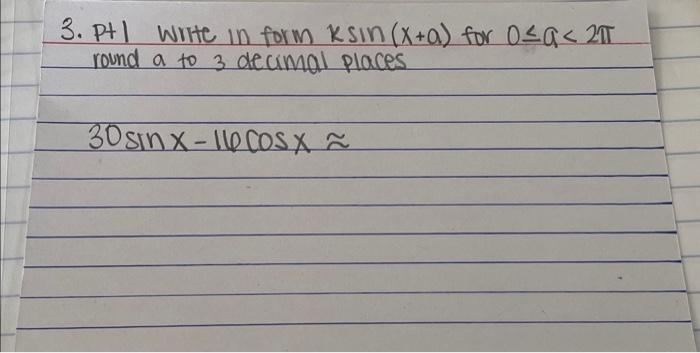 3. pt 1 Write in form k sin (x+a) for 0≤a< 2π
round a to 3 decimal places
30 sin x - 16 cos x ≈